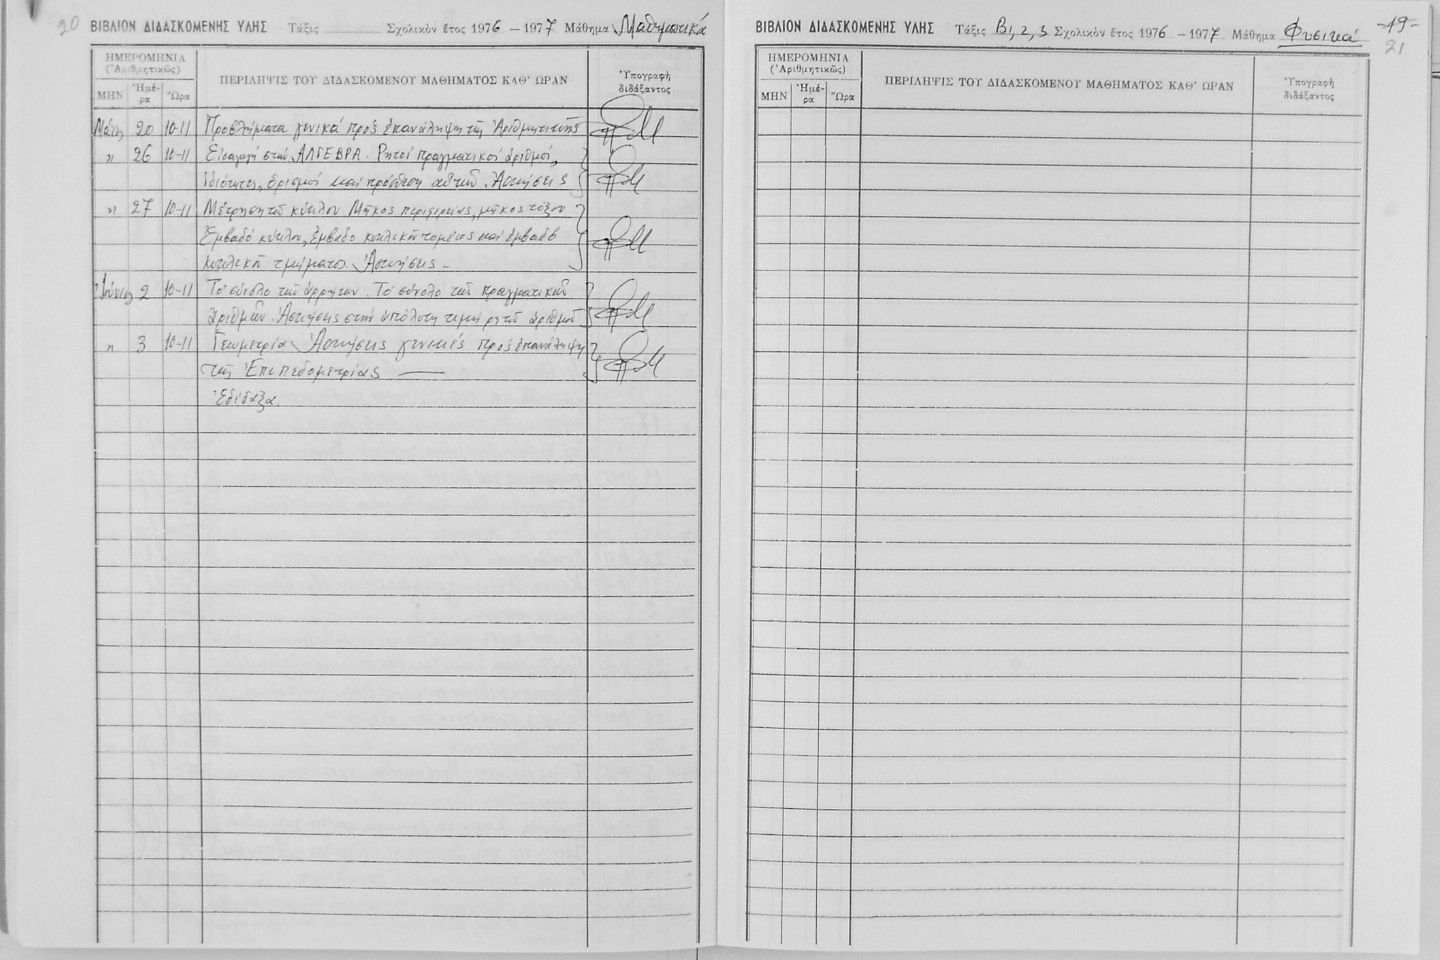 20 ΒΙΒΛΙΟΝ ΔΙΔΑΣΚΟΜΕΝΗΣ ΥΛΗΣ Τάξις Σχολικὸν ἔτος 1976 – 1977 Μάθημα Μαθηματικά
ΗΜΕΡΟΜΗΝΙΑ
(Ἀριθμητικῶς)
ΜΗΝ Ἡμέ-
ρα Ὥρα
ΠΕΡΙΛΗΨΙΣ ΤΟΥ ΔΙΔΑΣΚΟΜΕΝΟΥ ΜΑΘΗΜΑΤΟΣ ΚΑΘ' ΩΡΑΝ
Ὑπογραφὴ
διδάξαντος
Μάϊος 20 10-11 Προβλήματα γενικά πρός ἐπανάληψη τῆς Ἀριθμητικῆς
" 26 10-11 Εἰσαγωγή στήν ΑΛΓΕΒΡΑ. Ρητοί πραγματικοί ἀριθμοί,
ἰδιότητες, ὁρισμοί καί πρόσθεση αὐτῶν. Ἀσκήσεις
" 27 10-11 Μέτρηση τοῦ κύκλου Μῆκος περιφερείας, μῆκος τόξου
Ἐμβαδό κύκλου, ἐμβαδό κυκλικοῦ τομέως καί ἐμβαδό
κυκλικοῦ τμήματος. Ἀσκήσεις –
Ἰούνιος 2 10-11 Τό σύνολο τῶν ἀρρήτων. Τό σύνολο τῶν πραγματικῶν
ἀριθμῶν. Ἀσκήσεις στήν ἀπόλυτη τιμή ρητοῦ ἀριθμοῦ
" 3 10-11 Γεωμετρία. Ἀσκήσεις γενικές πρός ἐπανάληψη
τῆς Ἐπιπεδομετρίας —
Ἐδίδαξα.
ΒΙΒΛΙΟΝ ΔΙΔΑΣΚΟΜΕΝΗΣ ΥΛΗΣ Τάξις Β1, 2, 3 Σχολικὸν ἔτος 1976 – 1977 Μάθημα Φυσικά -19-
21
ΗΜΕΡΟΜΗΝΙΑ
(Ἀριθμητικῶς)
ΜΗΝ Ἡμέ-
ρα Ὥρα
ΠΕΡΙΛΗΨΙΣ ΤΟΥ ΔΙΔΑΣΚΟΜΕΝΟΥ ΜΑΘΗΜΑΤΟΣ ΚΑΘ' ΩΡΑΝ
Ὑπογραφὴ
διδάξαντος